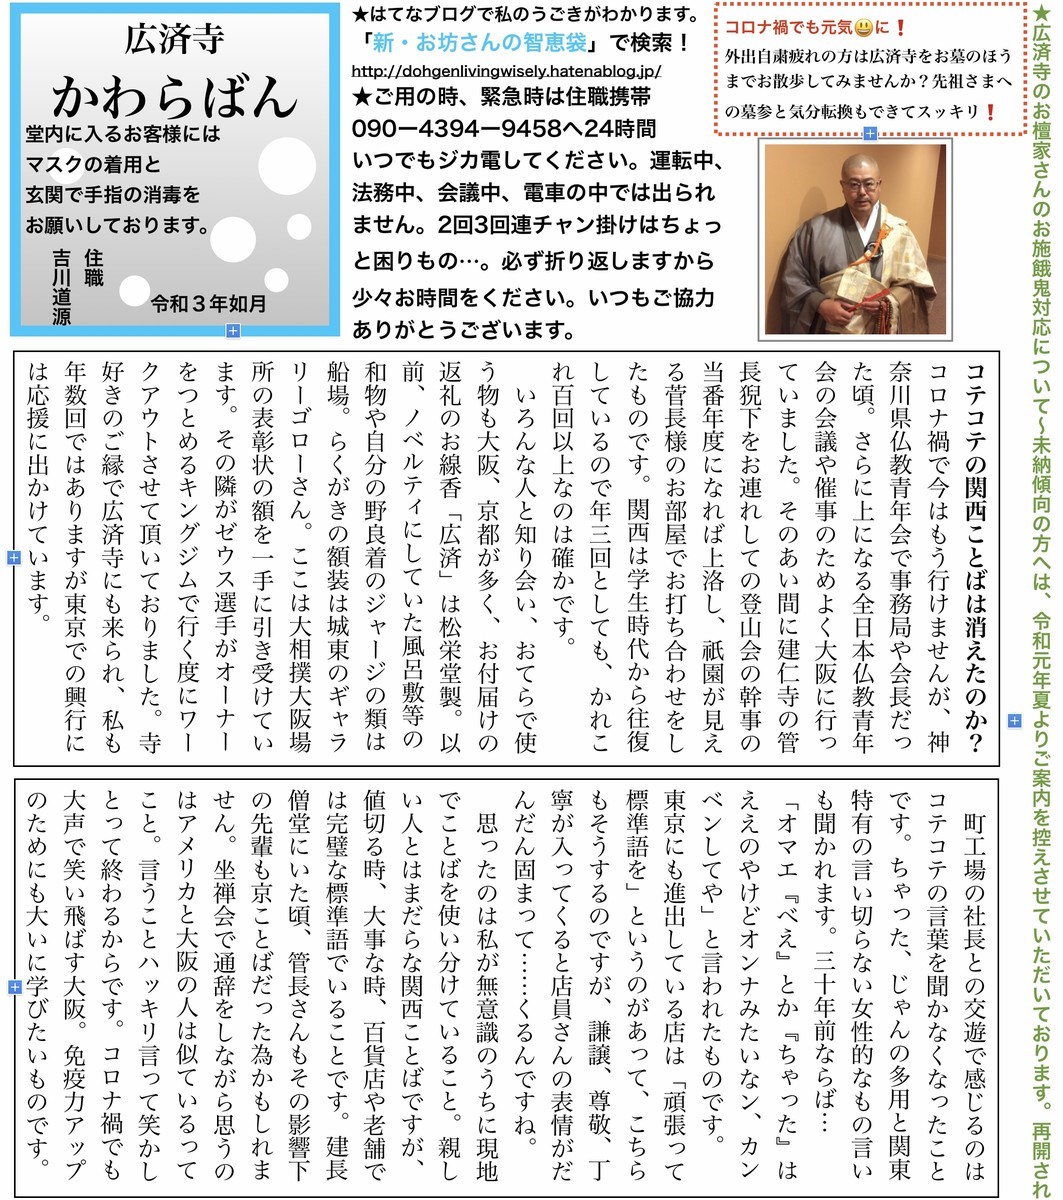 広済寺
かわらばん
堂内に入るお客様には
マスクの着用と
玄関で手指の消毒を
お願いしております。
住職
吉川道源
令和３年如月
★はてなブログで私のうごきがわかります。
「新・お坊さんの智恵袋」で検索！
http://dohgenlivingwisely.hatenablog.jp/
★ご用の時、緊急時は住職携帯
090ー4394ー9458へ24時間
いつでもジカ電してください。運転中、
法務中、会議中、電車の中では出られ
ません。2回3回連チャン掛けはちょっ
と困りもの…。必ず折り返しますから
少々お時間をください。いつもご協力
ありがとうございます。
コロナ禍でも元気😃に❗
外出自粛疲れの方は広済寺をお墓のほう
までお散歩してみませんか？先祖さまへ
の墓参と気分転換もできてスッキリ❗
★広済寺のお檀家さんのお施餓鬼対応について〜未納傾向の方へは、令和元年夏よりご案内を控えさせていただいております。再開され
コテコテの関西ことばは消えたのか？
コロナ禍で今はもう行けませんが、神
奈川県仏教青年会で事務局や会長だっ
た頃。さらに上になる全日本仏教青年
会の会議や催事のためよく大阪に行っ
ていました。そのあい間に建仁寺の管
長猊下をお連れしての登山会の幹事の
当番年度になれば上洛し、祇園が見え
る菅長様のお部屋でお打ち合わせをし
たものです。関西は学生時代から往復
しているので年三回としても、かれこ
れ百回以上なのは確かです。
いろんな人と知り会い、おてらで使
う物も大阪、京都が多く、お付届けの
返礼のお線香「広済」は松栄堂製。以
前、ノベルティにしていた風呂敷等の
和物や自分の野良着のジャージの類は
船場。らくがきの額装は城東のギャラ
リーゴローさん。ここは大相撲大阪場
所の表彰状の額を一手に引き受けてい
ます。その隣がゼウス選手がオーナー
をつとめるキングジムで行く度にワー
クアウトさせて頂いておりました。寺
好きのご縁で広済寺にも来られ、私も
年数回ではありますが東京での興行に
は応援に出かけています。
町工場の社長との交遊で感じるのは
コテコテの言葉を聞かなくなったこと
です。ちゃった、じゃんの多用と関東
特有の言い切らない女性的なもの言い
も聞かれます。三十年前ならば…
「オマエ『べえ』とか『ちゃった』は
ええのやけどオンナみたいなン、カン
ベンしてや」と言われたものです。
東京にも進出している店は「頑張って
標準語を」というのがあって、こちら
もそうするのですが、謙譲、尊敬、丁
寧が入ってくると店員さんの表情がだ
んだん固まって……くるんですね。
思ったのは私が無意識のうちに現地
でことばを使い分けていること。親し
い人とはまだらな関西ことばですが、
値切る時、大事な時、百貨店や老舗で
は完璧な標準語でいることです。建長
僧堂にいた頃、管長さんもその影響下
の先輩も京ことばだった為かもしれま
せん。坐禅会で通辞をしながら思うの
はアメリカと大阪の人は似ているって
こと。言うことハッキリ言って笑かし
とって終わるからです。コロナ禍でも
大声で笑い飛ばす大阪。免疫力アップ
のためにも大いに学びたいものです。